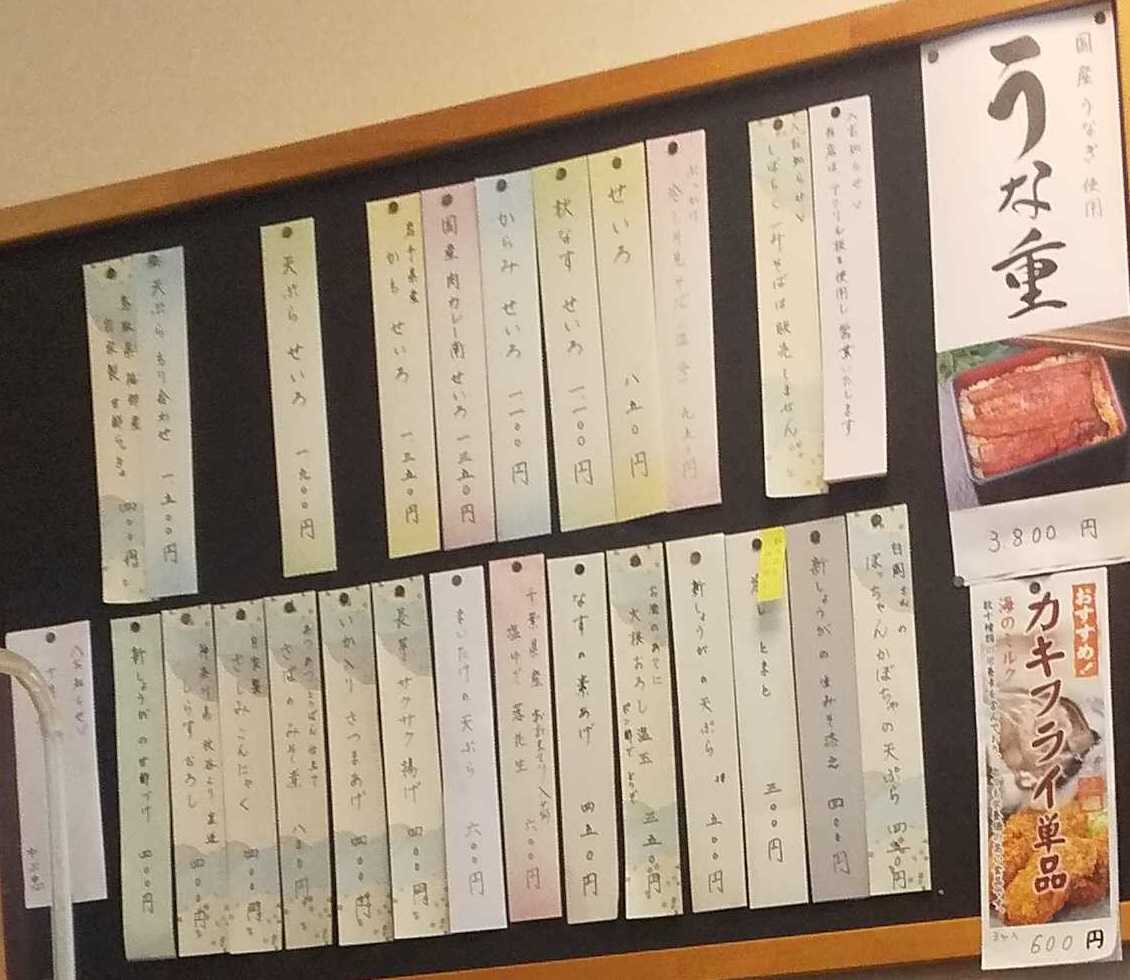 国産うなぎ使用
うな重
3.800 円
おすすめ!
カキフライ単品
海のミルク
600 円
〈お知らせ〉
当店はアクリル板を使用し営業いたします
〈お知らせ〉
しばらく
そばは販売しません
ぶっかけ
九五〇円
せいろ 八五〇円
秋なす せいろ 一、一〇〇円
からみ せいろ 一、一〇〇円
国産肉カレー南せいろ 一三五〇円
岩手県産
かも せいろ 一、三五〇円
天ぷら せいろ 一九〇〇円
天ぷらもり合わせ 一、五〇〇円
鳥取県
産
自家製 甘酢らっきょ 四〇〇円
さんの
ぼっちゃんかぼちゃの天ぷら 四五〇円
新しょうがの生みそ添え 四〇〇円
冷しとまと 三〇〇円
新しょうがの天ぷら 五〇〇円
お酒のあてに
大根おろし温玉 五五〇円
なすの素あげ 四五〇円
千葉県産 おおまさり
塩ゆで 落花生 六〇〇円
まいたけの天ぷら 六〇〇円
長芋 サクサク揚げ 四〇〇円
いか入り さつまあげ 四〇〇円
さばのみそ煮 八〇〇円
自家製
さしみこんにゃく 四〇〇円
神奈川県
しらすおろし 四〇〇円
新しょうがの甘酢づけ 四〇〇円
〈お知らせ〉